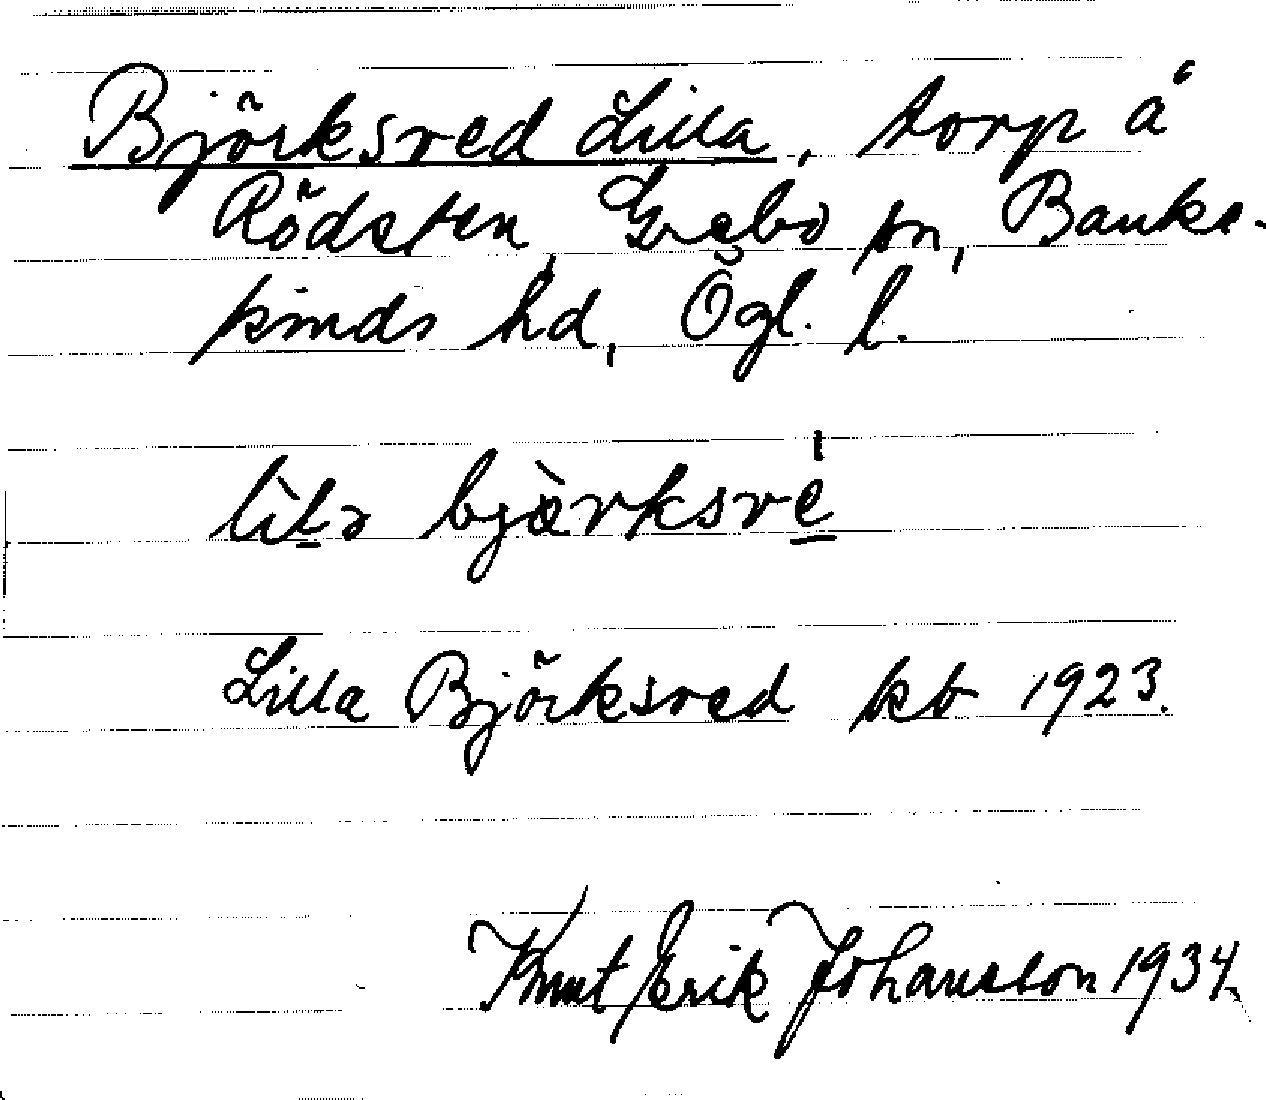 Björksved Lilla, torp å
Rödsten, Grebo sn, Banke-
kinds hd, Ögl. l.
lìlɂ bjærksvé
Lilla Björksved kb 1923.
Knut Erik Johansson 1934